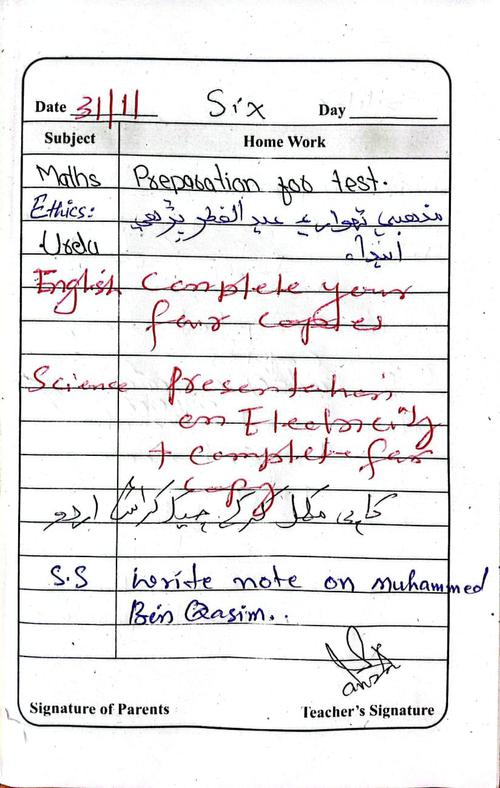 Date 31/1/ Six Day
Subject Home Work
Maths Preparation for test.
Ethics: مذہبی تہوار عید الفطر پڑھی
Urdu ابتداء
English Complete your
fair copies
Science Presentation
on Electricity
+ complete fair
copy
کاپی مکمل کرکے چیک کرائیں اردو
S.S write note on muhammed
Bin Qasim..
Signature of Parents Teacher's Signature